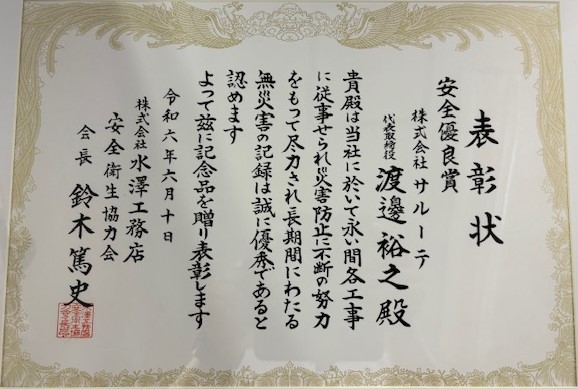 表彰状
安全優良賞
株式会社 サルーテ
代表取締役 渡邊裕之殿
貴殿は当社に於いて永い間各工事
に従事せられ災害防止に不断の努力
をもって尽力され長期間にわたる
無災害の記録は誠に優秀であると
認めます
よって茲に記念品を贈り表彰します
令和六年六月十日
株式会社 水澤工務店
安全衛生協力会
会長 鈴木篤史